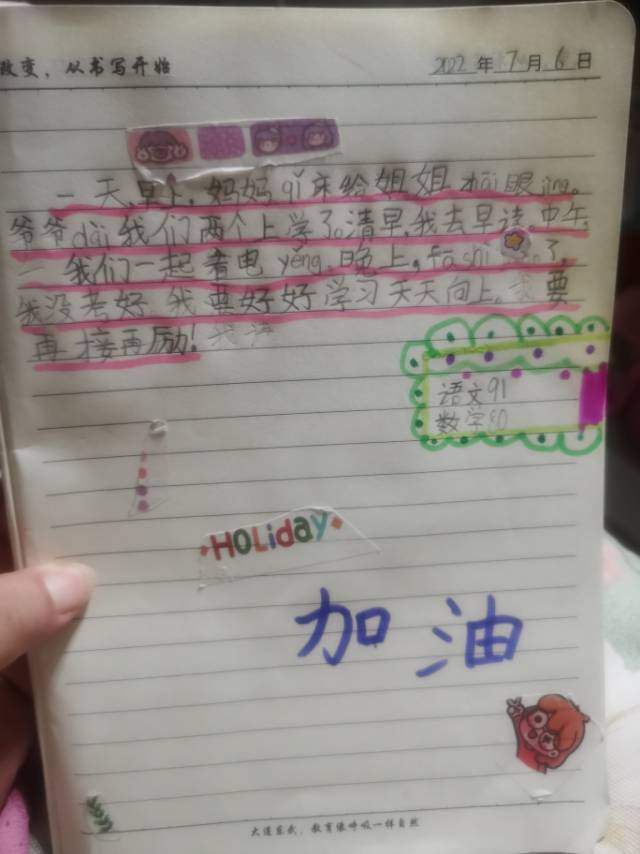 改变，从书写开始
2022年7月6日
一天,早上,妈妈qǐ床给姐姐zhāi眼jing。
爷爷dài我们两个上学了。清早,我去早读。中午,
我们一起看电yěng,晚上,fā shì 了,
我没考好 我要好好学习天天向上。我要
再接再励！我
语文91
数字80
HOLiday
加油
大道东成，教育像呼吸一样自然